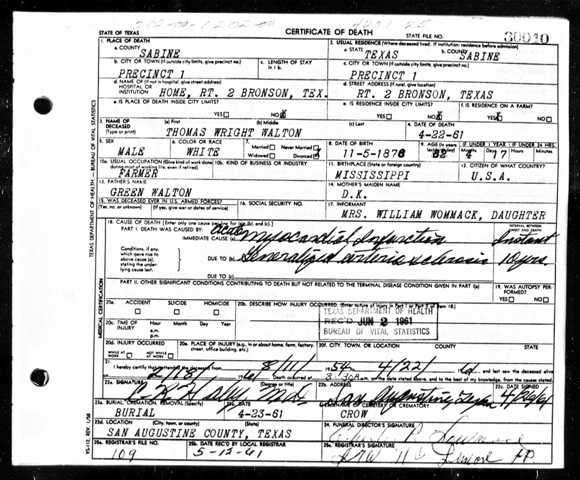 STATE OF TEXAS
CERTIFICATE OF DEATH
STATE FILE NO.
1. PLACE OF DEATH
2. USUAL RESIDENCE (Where deceased lived. If institution: residence before admission)
a. COUNTY
SABINE
a. STATE
TEXAS
b. COUNTY
SABINE
b. CITY OR TOWN (If outside city limits, give precinct no.)
c. LENGTH OF STAY
c. CITY OR TOWN (If outside city limits, give precinct no.)
PRECINCT 1
PRECINCT 1
d. NAME OF (If not in hospital, give street address)
HOSPITAL OR
INSTITUTION
HOME, RT. 2 BRONSON, TEX.
d. STREET ADDRESS (If rural, give location)
RT. 2 BRONSON, TEXAS
e. IS PLACE OF DEATH INSIDE CITY LIMITS?
YES NO X
e. IS RESIDENCE INSIDE CITY LIMITS?
YES NO
f. IS RESIDENCE ON A FARM?
YES NO
3. NAME OF
DECEASED
(Type or print)
(a) First
(b) Middle
(c) Last
THOMAS WRIGHT WALTON
4. DATE OF DEATH
4-22-61
5. SEX
MALE
6. COLOR OR RACE
WHITE
7. Married Never Married
Widowed Divorced
8. DATE OF BIRTH
11-5-1878
IF UNDER 1 YEAR
IF UNDER 24 HRS.
10a. USUAL OCCUPATION (Give kind of work done
FARMER
10b. KIND OF BUSINESS OR INDUSTRY
11. BIRTHPLACE (State or foreign country)
MISSISSIPPI
12. CITIZEN OF WHAT COUNTRY?
U.S.A.
13. FATHER'S NAME
GREEN WALTON
14. MOTHER'S MAIDEN NAME
D.K.
15. WAS DECEASED EVER IN U.S. ARMED FORCES?
(Yes, no, or unknown) (If yes, give war or dates of service)
16. SOCIAL SECURITY NO.
17. INFORMANT
MRS. WILLIAM WOMMACK, DAUGHTER
18. CAUSE OF DEATH
PART I. DEATH WAS CAUSED BY:
IMMEDIATE CAUSE (a)
Myocardial Infarction
Instant
Conditions, if any,
which gave rise to
above cause (a)
stating the under-
lying cause last.
DUE TO (b)
Generalized arteriosclerosis
10 yrs.
DUE TO (c)
PART II. OTHER SIGNIFICANT CONDITIONS CONTRIBUTING TO DEATH BUT NOT RELATED TO THE TERMINAL DISEASE CONDITION GIVEN IN PART I(a)
19. WAS AUTOPSY PER-
FORMED?
YES NO
20a. ACCIDENT SUICIDE HOMICIDE
20b. DESCRIBE HOW INJURY OCCURRED.
20c. TIME OF
INJURY
Hour Month Day Year
a.m.
p.m.
TEXAS DEPARTMENT OF HEALTH
REC'D JUN 2 1961
BUREAU OF VITAL STATISTICS
20d. INJURY OCCURRED
WHILE AT
WORK
NOT WHILE
AT WORK
20e. PLACE OF INJURY (e.g., in or about home, farm, factory,
street, office building, etc.)
20f. CITY, TOWN, OR LOCATION
COUNTY
STATE
8/11/
4/22/
22a. SIGNATURE
(Degree or title)
22b. ADDRESS
San Augustine, Texas
22c. DATE SIGNED
23a. BURIAL, CREMATION, REMOVAL (Specify)
BURIAL
23b. DATE
4-23-61
23c. NAME OF CEMETERY OR CREMATORY
CROW
23d. LOCATION (City, town, or county)
(State)
SAN AUGUSTINE COUNTY, TEXAS
24. FUNERAL DIRECTOR'S SIGNATURE
25a. REGISTRAR'S FILE NO.
109
25b. DATE REC'D BY LOCAL REGISTRAR
5-12-61
25c. REGISTRAR'S SIGNATURE
TEXAS DEPARTMENT OF HEALTH — BUREAU OF VITAL STATISTICS
MEDICAL CERTIFICATION
VS-112, REV. 1/58